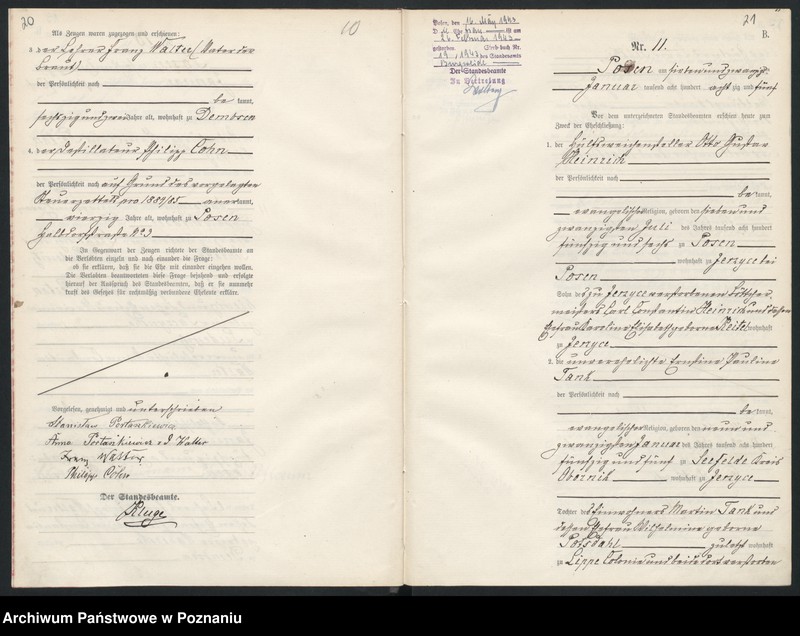 20
10
Als Zeugen waren zugezogen und erschienen:
3. der Lehrer Franz Walter (Vater der
Braut)
der Persönlichkeit nach
be kannt,
sechszigundzwei Jahre alt, wohnhaft zu Dembsen
4. der Destillateur Philipp Cohn
der Persönlichkeit nach auf Grund des vorgelegten
Steuerzettels pro 1884/85 anerkannt,
vierzig Jahre alt, wohnhaft zu Posen
Halbdorfstraße No 23
In Gegenwart der Zeugen richtete der Standesbeamte an
die Verlobten einzeln und nach einander die Frage:
ob sie erklären, daß sie die Ehe mit einander eingehen wollen.
Die Verlobten beantworteten diese Frage bejahend und erfolgte
hierauf der Ausspruch des Standesbeamten, daß er sie nunmehr
kraft des Gesetzes für rechtmäßig verbundene Eheleute erkläre.
Vorgelesen, genehmigt und unterschrieben
Anna geb. Walter
Franz Walter
Philipp Cohn
Der Standesbeamte.
Kluge
Posen, den 16. May 1943
ist am
26. Februar 1943
gestorben Sterb buch Nr.
19/1943 des Standesamts
Der Standesbeamte
In Vertretung
21
B.
Nr. 11.
Posen am siebenundzwanzigsten
Januar tausend acht hundert achtzig und fünf
Vor dem unterzeichneten Standesbeamten erschienen heute zum
Zweck der Eheschließung:
1. der Hülfsweichensteller Otto Gustav
Heinrich
der Persönlichkeit nach
be kannt,
evangelischer Religion, geboren den sieben und
zwanzigsten Juli des Jahres tausend acht hundert
fünfzig und sechs zu Posen
wohnhaft zu Jerzyce bei
Posen
Sohn des zu Jerzyce verstorbenen Böttcher-
meisters Carl Constantin Heinrich und dessen
Ehefrau Karoline Elisabeth geborene Keitel wohnhaft
zu Jerzyce
2. die unverehelichte Ernstine Pauline
Tank
der Persönlichkeit nach
be kannt,
evangelischer Religion, geboren den neun und
zwanzigsten Januar des Jahres tausend acht hundert
fünfzig und fünf zu Seefelde Kreis
Obornik wohnhaft zu Jerzyce
Tochter des Einwohners Martin Tank und
dessen Ehefrau Wilhelmine geborene
zuletzt wohnhaft
zu Lippe Colonie und beide dort verstorben
Archiwum Państwowe w Poznaniu